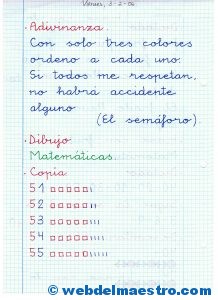 Viernes, 3-2-06
. Adivinanza.
Con solo tres colores
ordeno a cada uno.
Si todos me respetan,
no habrá accidente
alguno
(El semáforo).
. Dibujo
Matemáticas.
. Copia
51
52
53
54
55
© www.webdelmaestro.com